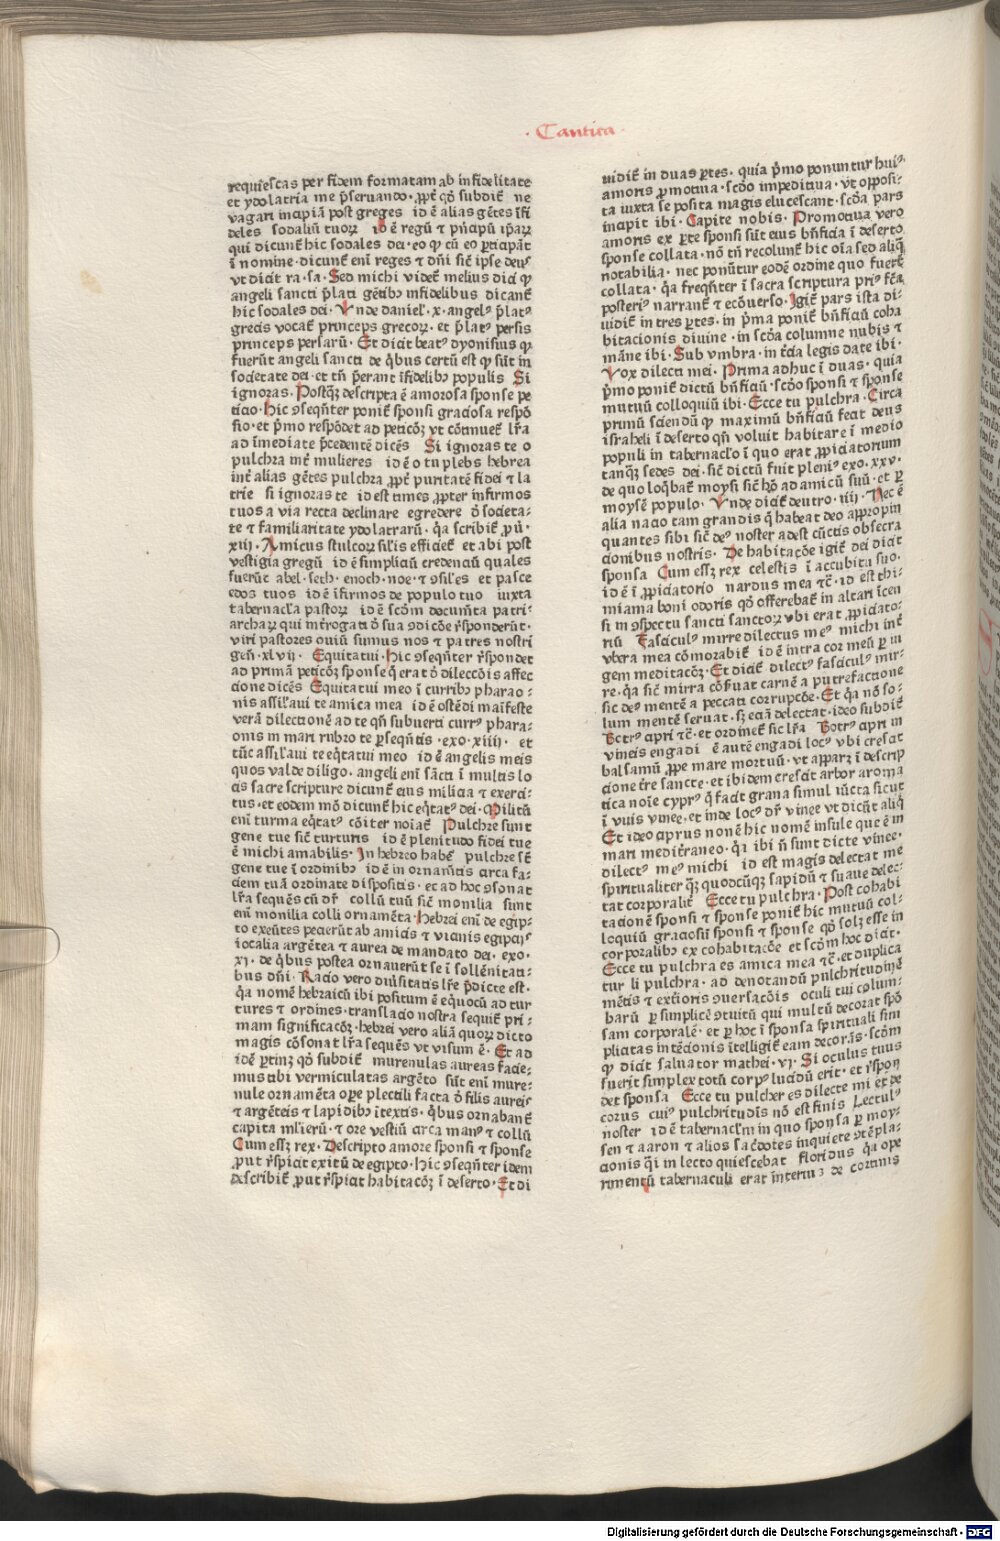 · Cantica ·
requiescas per fidem formatam ab infidelitate
et ydolatria me p̄seruando · ꝓpt̄ qd̄ subdit̄ ne
vagari incipiā post greges id ē alias gētes īfi
deles sodaliū tuoꝝ id ē regū ⁊ pn̄cipū ip̄aꝝ
qui dicunt̄ hic sodales dei · eo ꝙ cū eo ꝑticipāt
ī nomine · dicunt̄ eni reges ⁊ dn̄i sic̄ ipse deus
vt dicit ra · sa · Sed michi videt̄ melius dici ꝙ
angeli sancti p̄lati gētibꝫ infidelibus dicant̄
hic sodales dei · Vnde daniel̄ · x · angelꝰ p̄latꝰ
grecis vocat̄ princeps grecoꝝ · et p̄latꝰ persis
princeps persarū · Et dicit beatꝰ dyonisius ꝙ
fuerūt angeli sancti de qͥbus certū est ꝙ sūt in
societate dei · et tn̄ p̄erant īfidelibꝫ populis Si
ignoras · Postqꝫ descripta ē amorosa sponse pe
ticio · hic ꝯseqn̄ter ponit̄ sponsi graciosa respō
sio · et pͥmo respōdet ad peticōꝫ vt cōtinuet̄ lr̄a
ad īmediate p̄cedentē dicēs Si ignoras te o
pulchra int̄ mulieres id ē o tu plebs hebrea
int̄ alias gētes pulchra ꝓpt̄ puritatē fidei ⁊ la
trie si ignoras te id est times ꝓpter infirmos
tuos a via recta declinare egredere d̄ societa-
te ⁊ familiaritate ydolatrarū · qͣ scribit̄ ꝓū ·
xiij · Amicus stulcoꝝ sil̄is efficiet̄ et abi post
vestigia gregū id ē simpliciū credenciū quales
fuerūt abel · seth · enoch · noe · ⁊ ꝯsil̄es et pasce
edos tuos id ē īfirmos de populo tuo iuxta
tabernacl̄a pastoꝝ id ē scd̄m documēta patri-
archaꝝ qui int̄rogati d̄ sua ꝯdicōe rn̄sponderūt ·
viri pastores ouiū sumus nos ⁊ patres nostri
gen̄ · xlvij · Equitatui · hic ꝯseqn̄ter r̄spondet
ad primā peticōꝫ sponse q̄ erat d̄ dileccōis affec
cione dicēs Equitatui meo ī curribꝫ pharao-
nis assil̄aui te amica mea id ē ostēdi maīfeste
verā dilectionē ad te qn̄ subuerti currꝰ phara-
onis in mari rubro te ꝑseqn̄tis · exo · xiiij · et
tūc assil̄aui te eqͥtatui meo id ē angelis meis
quos valde diligo · angeli eni sācti ī multis lo
cis sacre scripture dicunt̄ eius milicia ⁊ exerci-
tus · et eodem mō dicunt̄ hic eqͥtatꝰ dei · Militū
eni turma eqͥtatꝰ cōiter noīat̄ Pulchre sunt
gene tue sic̄ turturis id ē plenitudo fidei tue
ē michi amabilis · In hebreo habet̄ pulchre st̄
gene tue ī ordinibꝫ id ē in ornam̄tis arca fa-
ciem tuā ordinate dispositis · ec ad hoc ꝯsonat
lr̄a sequēs cū dr̄ collū tuū sic̄ monilia sunt
eni monilia colli ornamēta · hebrei eni de egip-
to exeūtes pecierūt ab amicis ⁊ vicinis egipcijs
iocalia argētea ⁊ aurea de mandato dei · exo ·
xj · de qͥbus postea ornauerūt se ī sollēnitati-
bus dn̄i · Racio vero diuͥsitatis lr̄e p̄dicte est ·
qͣ nomē hebraicū ibi positum ē equocū ad tur
tures ⁊ ordines · translacio nostra sequit̄ pri-
mam significacōꝫ · hebrei vero aliā quoꝝ dicto
magis cōsonat lr̄a sequēs vt visum ē · Et ad
idē ꝑtinꝫ qd̄ subdit̄ murenulas aureas facie-
mus tibi vermiculatas argēto sūt eni mure-
nule ornamēta oꝑe plectili facta d̄ filis aureis
⁊ argēteis ⁊ lapidibꝫ ītextis · qͥbus ornabant̄
capita ml̄ierū · ⁊ ore vestiū circa manꝰ ⁊ collū
Cum essꝫ rex · Descripto amore sponsi ⁊ sponse
ꝓut r̄spicit exitū de egipto · hic ꝯseqn̄ter idem
describit̄ ꝓut r̄spicit habitacōꝫ ī deserto · Et di
uidit̄ in duas ꝑtes · quia pͥmo ponuntur huiꝰ
amoris ꝓmotiua · scd̄o impeditiua · vt opposi-
ta iuxta se posita magis elucescant · scd̄a pars
incipit ibi · Capite nobis · Promotiua vero
amoris ex ꝑte sponsi sūt eius bn̄ficia ī deserto
sponse collata · nō tn̄ recolunt̄ hic oīa sed aliqͣ
notabilia · nec ponūtur eodē ordine quo fuert̄
collata · qͣ freqn̄ter ī sacra scriptura priꝰ fc̄a
posteriꝰ narrant̄ ⁊ ecōuerso · Igit̄ pars ista di-
uidit̄ in tres ꝑtes · in pͥma ponit̄ bn̄ficiū coha
bitacionis diuine · in scd̄a columne nubis ⁊
māne ibi · Sub vmbra · in tc̄ia legis date ibi ·
Vox dilecti mei · Prima adhuc ī duas · quia
pͥmo ponit̄ dictū bn̄ficiū · scd̄o sponsi ⁊ sponse
mutuū colloquiū ibi · Ecce tu pulchra · Circa
primū sciendū ꝙ maximū bn̄ficiū fecit deus
israheli ī deserto qn̄ voluit habitare ī medio
populi in tabernacl̄o ī quo erat ꝓpiciatorium
tanqꝫ sedes dei · sic̄ dictū fuit pleniꝰ exo · xxv ·
de quo loqͥbat̄ moysi sic̄ hō ad amicū suū · et ꝑ
moysē populo · Vnde dicit̄ deutro · iiij · Nec ē
alia nacio tam grandis q̄ habeat deo appropin
quantes sibi sic̄ deꝰ noster adest cūctis obsecra
cionibus nostris · De habitacōe igit̄ dei dicit
sponsa Cum essꝫ rex celestis ī accubitu suo ·
id ē ī ꝓpiciatorio nardus mea ⁊c̄ · id est thi-
miama boni odoris qd̄ offerebat̄ in altari īcen
si in ꝯspectu sancti sanctoꝝ vbi erat ꝓpiciato-
riū Fasciculꝰ mirre dilectus meꝰ michi int̄
vbera mea cōmorabit̄ id ē intra cor meū ꝑ iu
gem meditacōꝫ · Et dicit̄ dilectꝰ fasciculꝰ mir-
re · qͣ sic̄ mirra cōs̄uat carnē a putrefactione
sic deꝰ mentē a peccati corrupcōe · Et qͣ nō so-
lum mentē seruat · sꝫ eciā delectat · ideo subdit̄
Botrꝰ cipri ⁊c̄ · et ordinet̄ sic lr̄a Botrꝰ cipri in
vineis engadi ē autē engadi locꝰ vbi crescit
balsamū ꝓpe mare mortuū · vt apparꝫ ī descrip
cione tr̄e sancte · et ibidem crescit arbor aroma
tica noīe cyprꝰ q̄ facit grana simul iūcta sicut
ī vuis vinee · et inde locꝰ dr̄ vinee vt dicūt aliqͥ
Et ideo ciprus non ē hic nomē insule que ē in
mari medit̄raneo · qͥ ibi n̄ sunt dicte vinee ·
dilectꝰ meꝰ michi id est magis delectat me
spiritualiter qꝫ quodcūqꝫ sapidū ⁊ suaue delec-
tat corporalit̄ Ecce tu pulchra · Post cohabi
tacionē sponsi ⁊ sponse ponit̄ hic mutuū col-
loquiū graciosū sponsi ⁊ sponse qd̄ solꝫ esse in
corporalibꝫ ex cohabitacōe et scd̄m hoc dicit ·
Ecce tu pulchra es amica mea ⁊c̄ · et duplica
tur li pulchra · ad denotandū pulchritudinē
mētis ⁊ extīoris ꝯuersacōis oculi tui colum-
barū ꝑ simplicē ꝯtuitū qui multū decorat spō
sam corporalē · et ꝑ hoc ī sponsa spirituali sim
plicitas intēcionis ītelligit̄ eam decorās · scd̄m
ꝙ dicit saluator mathei · vj · Si oculus tuus
fuerit simplex totū corpꝰ lucidū erit · et r̄spon
det sponsa Ecce tu pulcher es dilecte mi et de
corus cuiꝰ pulchritudīs nō est finis Lectulꝰ
noster id ē tabernacl̄m in quo sponsa ꝑ moy-
sen ⁊ aaron ⁊ alios sac̄dotes inquiete ꝯtēpla-
cionis qͥi in lecto quiescebat floridus qͣ ope
rimentū tabernaculi erat interius de cortinis
Digitalisierung gefördert durch die Deutsche Forschungsgemeinschaft · DFG